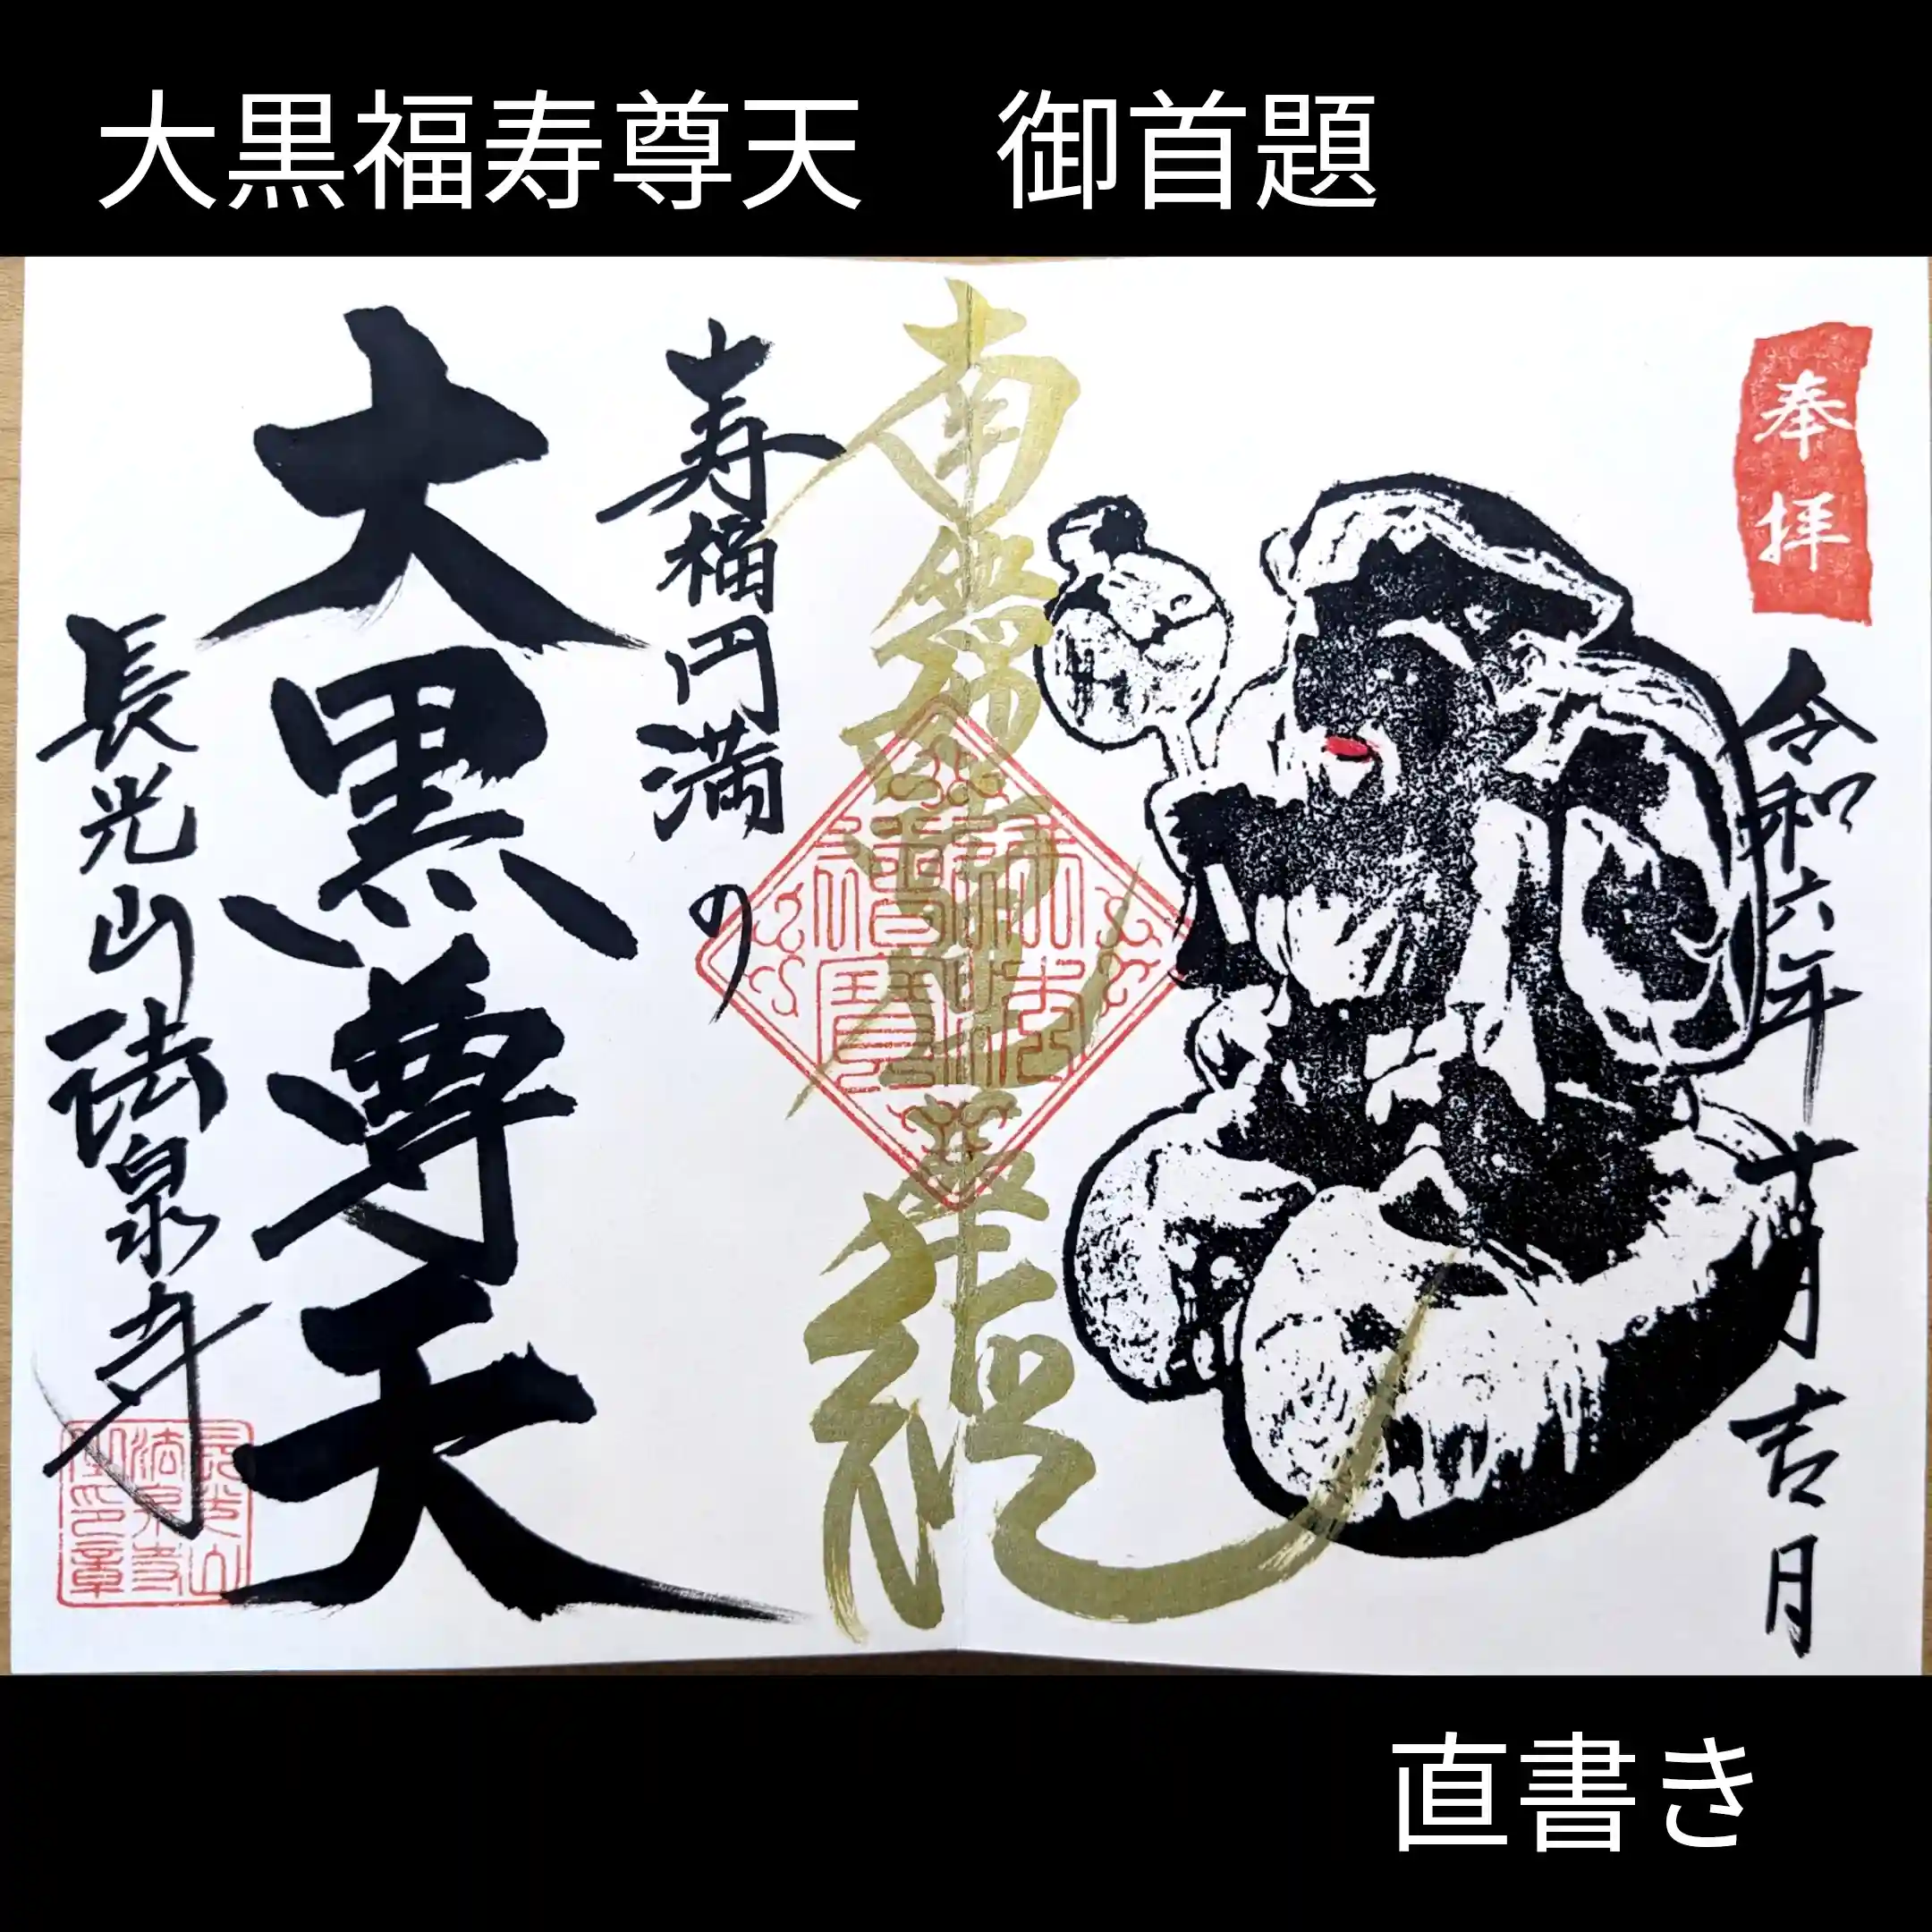 大黒福寿尊天 御首題
奉拝
令和六年 十二月 吉月
南無妙法蓮華経
寿福円満の
大黒尊天
長光山法泉寺
直書き